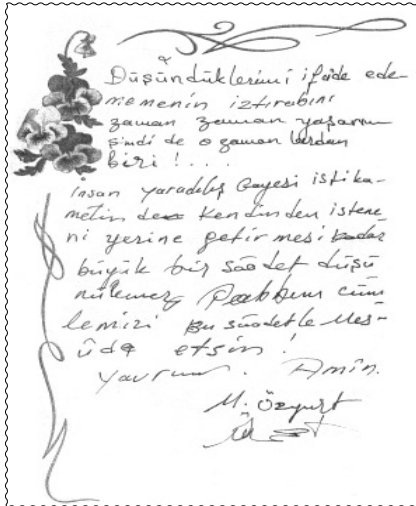 Düşündüklerimi ifade ede-
memenin ıztırabını
zaman zaman yaşarım
şimdi de o zamanlardan
biri !....
İnsan yaradılış Gayesi istika-
metinden kendinden istene-
ni yerine getirmesi kadar
büyük bir saadet düşü
nülemez Rabbim cüm
lemizi Bu saadetle Mes-
ûd etsin !
Yavrum. Amin.
M. Özyurt